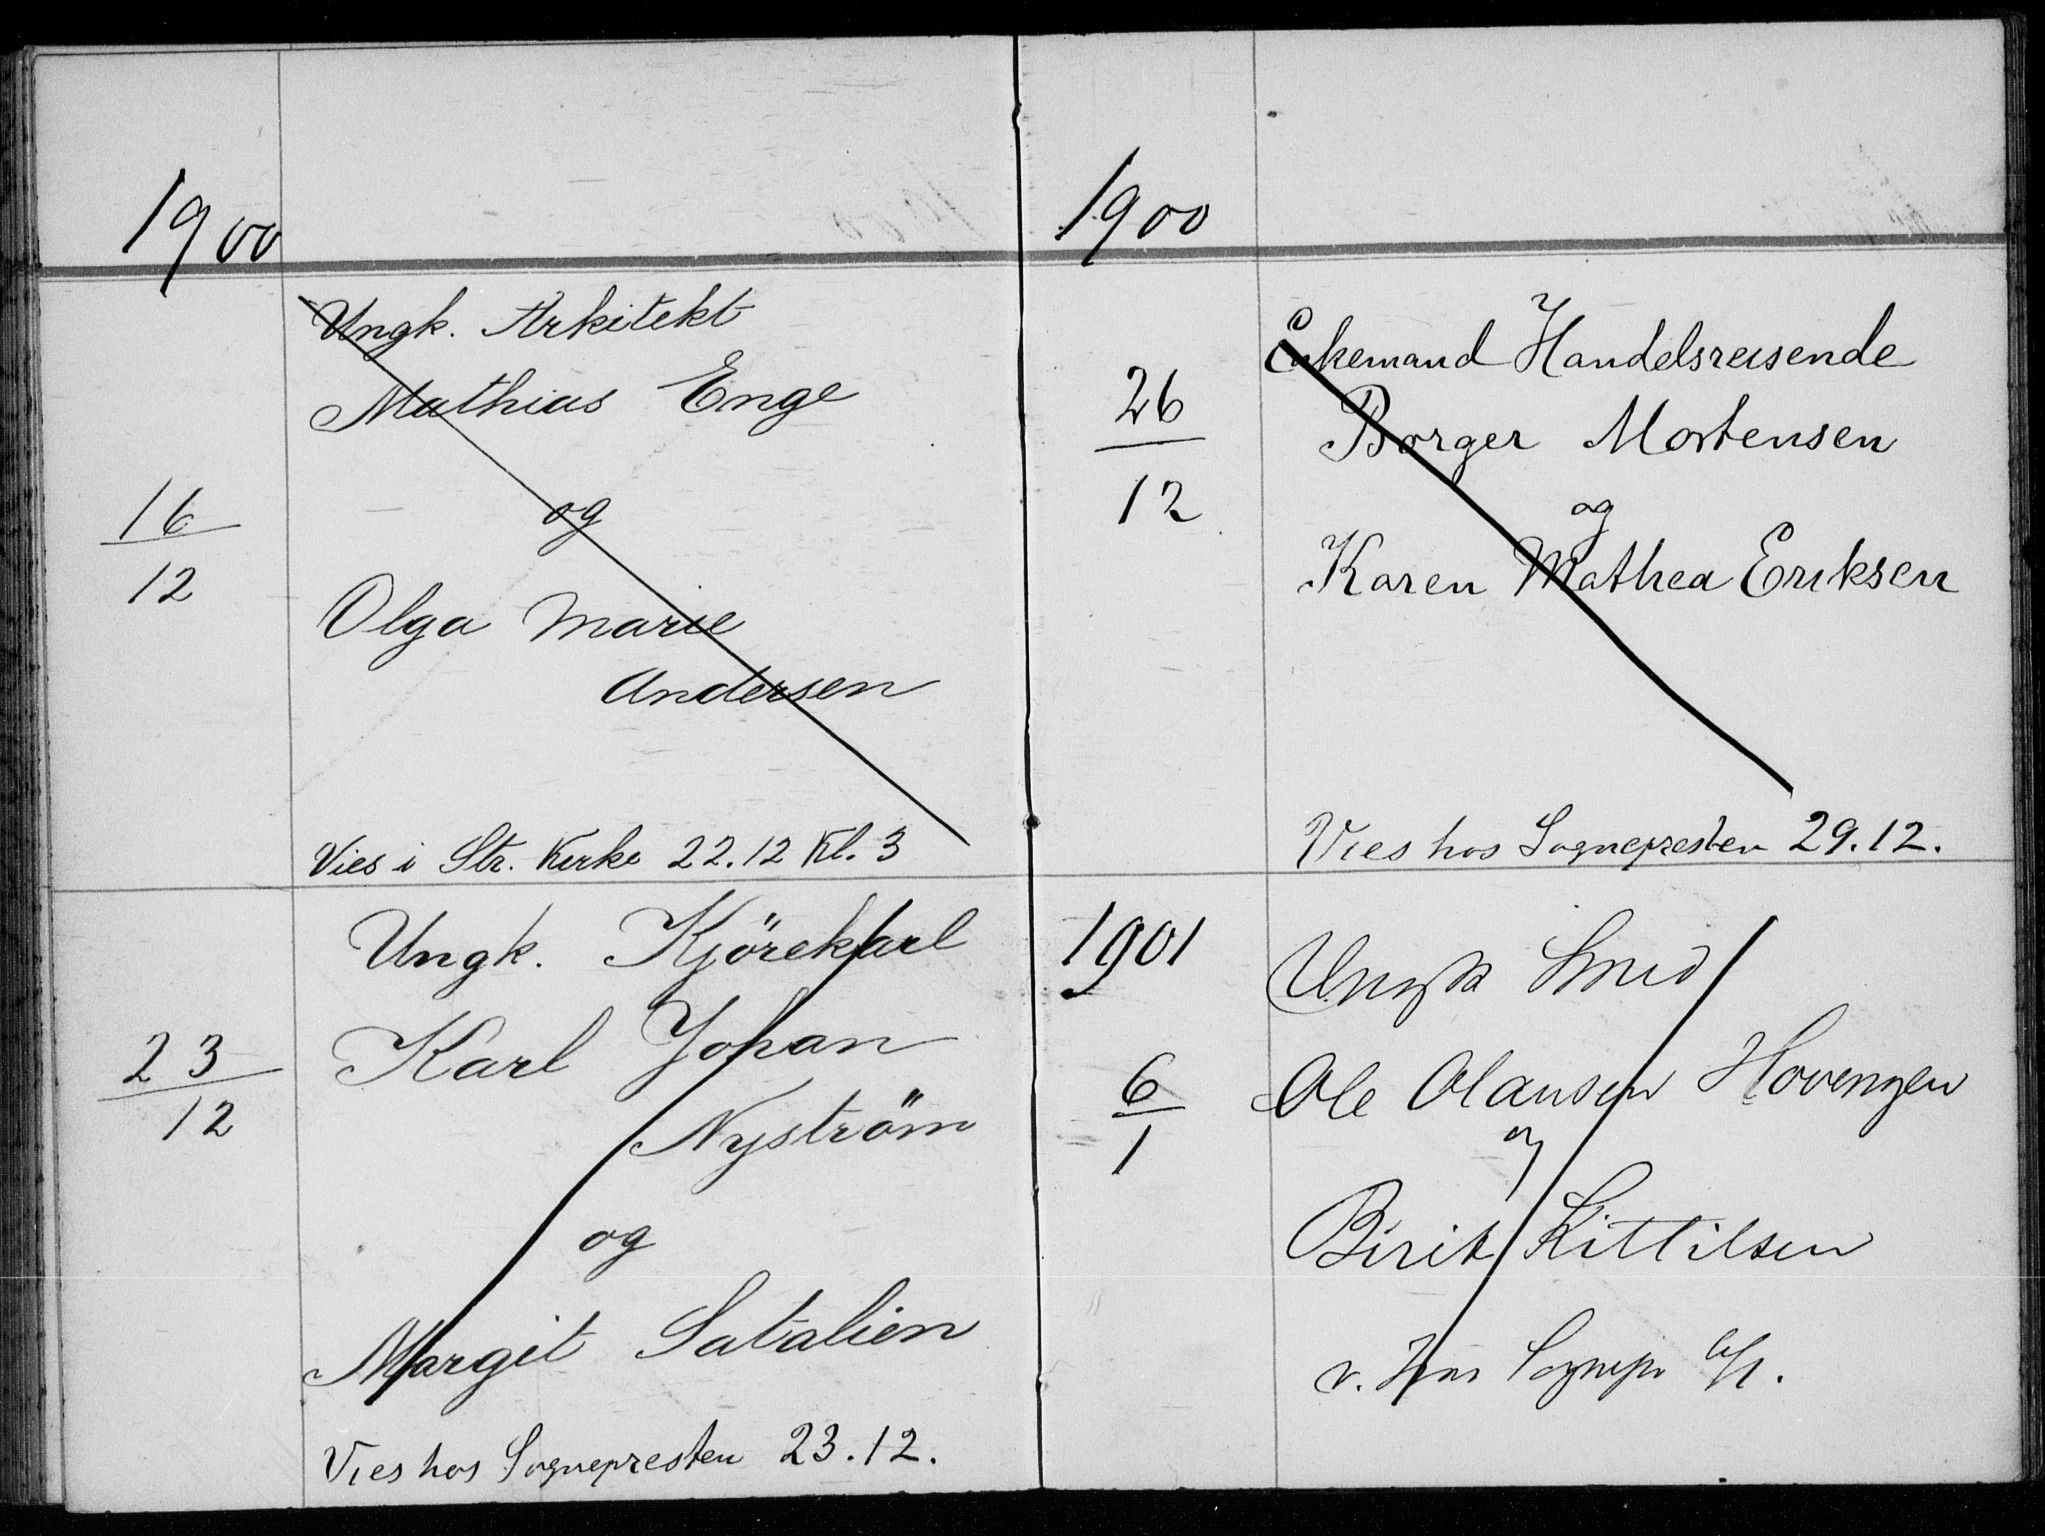 1900
Ungk. Arkitekt
Mathias Enge
16
12
og
Olga Marie
Andersen
Vies i Str. Kirke 22.12 Kl. 3
Ungk. Kjörekarl
23
12
Karl Johan
Nyström
og
Margit Satalien
Vies hos Sognepresten 23.12.
1900
26
12
Enkemand Handelsreisende
Borger Mortensen
og
Karen Mathea Eriksen
Vies hos Sognepresten 29.12.
1901
6
1
Ungk Smed
Ole Olausen Hovengen
og
Birit Kittilsen
v. hos Sognepr 6/1.